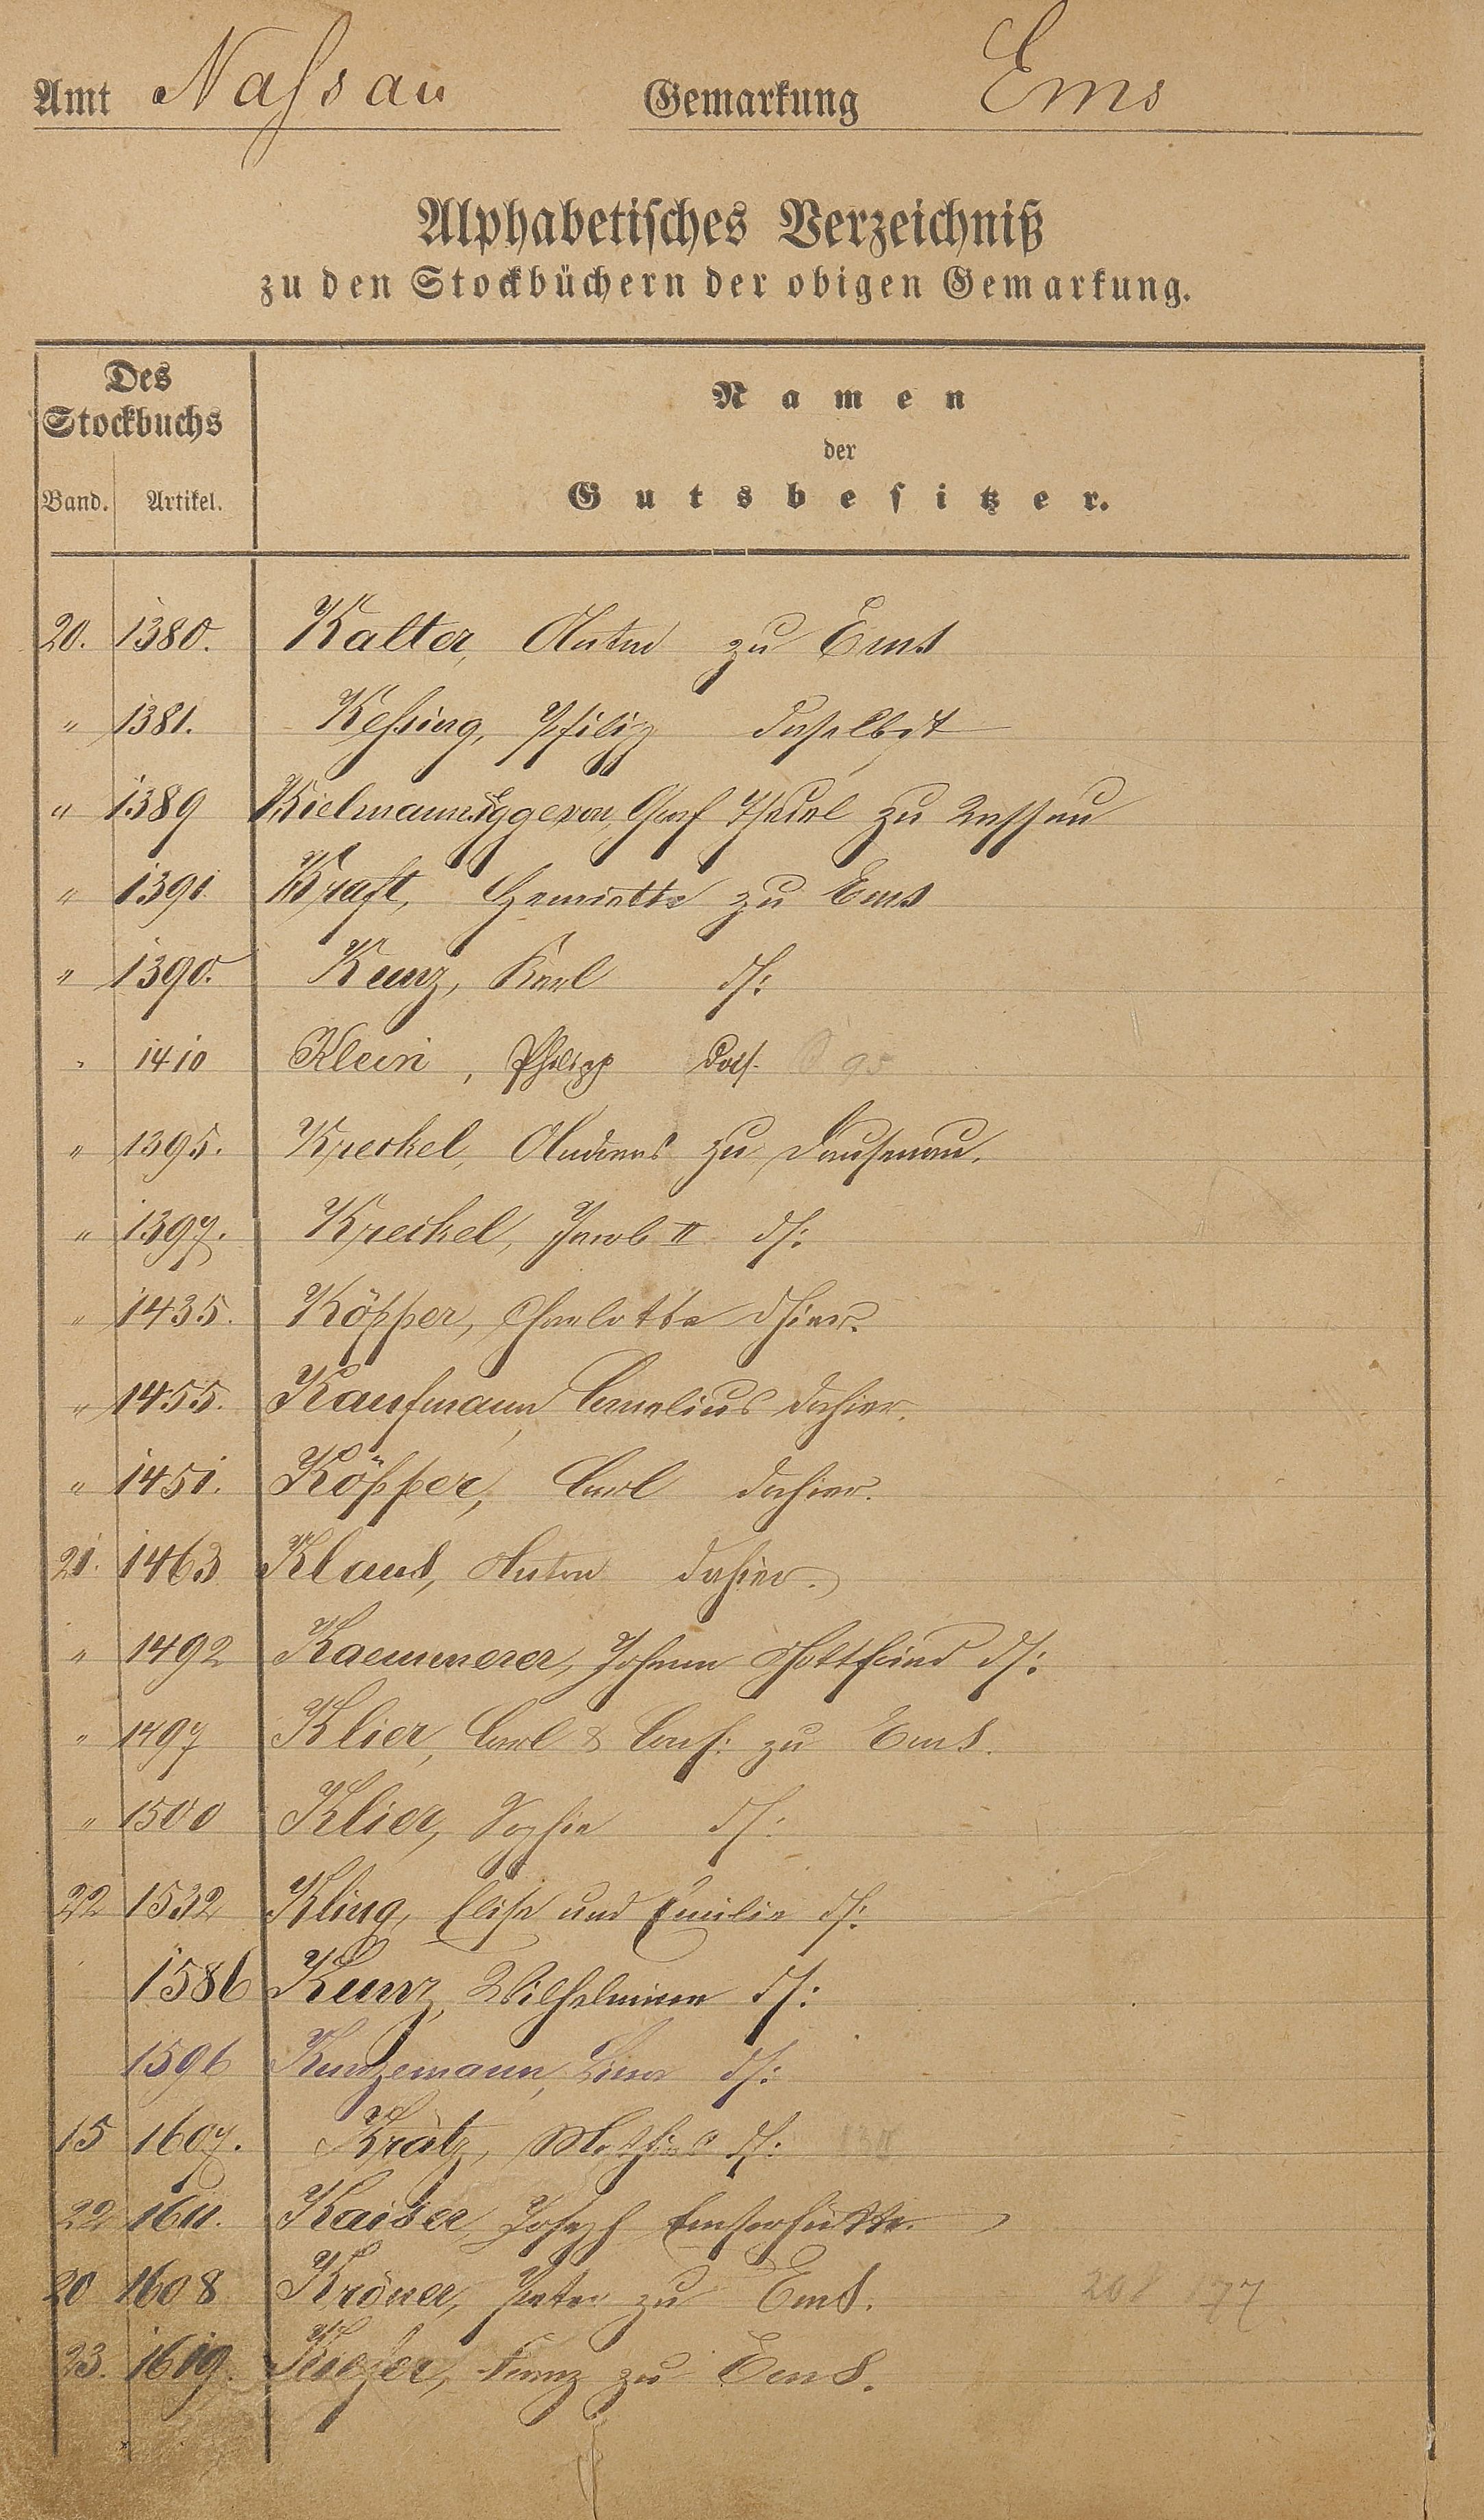 Amt Nassau Gemarkung Ems
Alphabetisches Verzeichniß
zu den Stockbüchern der obigen Gemarkung.
Des
Stockbuchs
Band. Artikel.
Namen
der
Gutsbesitzer.
20. 1380. Kalter, Anton zu Ems
" 1381. Kessing, Philipp daselbst
" 1389 Kielmannsegge von, Graf Thedel zu Nassau
" 1391. Kraft, Henriette zu Ems
" 1390. Kunz, Karl ds:
" 1410 Klein, Philipp das.
" 1395. Kreckel, Andreas zu Dausenau.
" 1397. Kreckel, Jacob II ds:
" 1435. Köpper, Charlotte dhier.
" 1455. Kaufmann, Cornelius dahier.
" 1451. Köpper, Carl dahier.
21. 1463 Klaus, Anton dahier.
" 1492 Kaemmerer, Johann Gottfried ds:
" 1497 Klier, Carl & Cons: zu Ems.
" 1500 Klier, Sophie ds:
22 1532 Kling, Elise und Emilie ds:
1586 Kunz, Wilhelmine ds:
1596 Kunzemann, Lina ds:
15 1607. Krätz, Mathias ds:
22 1611. Kaiser, Joseph Emserhütte.
20 1608 Kröner, Peter zu Ems.
23. 1619. Kiefer, Franz zu Ems.